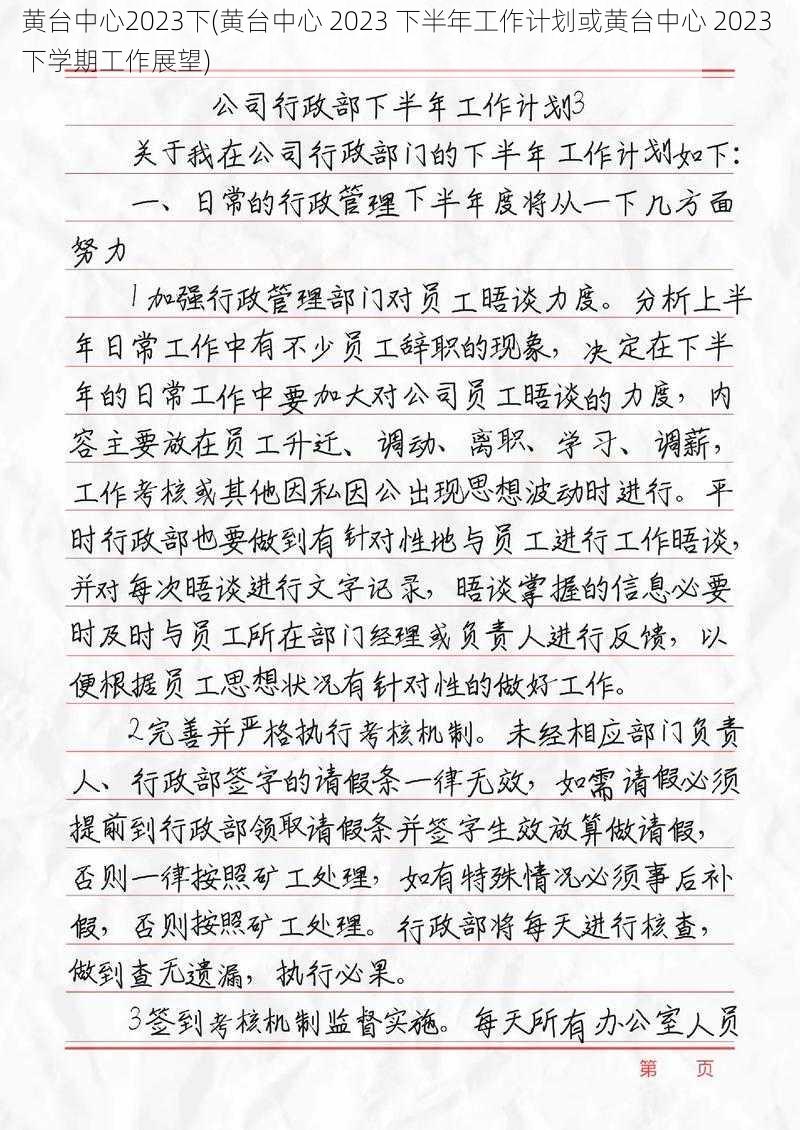 黄台中心2023下(黄台中心 2023 下半年工作计划或黄台中心 2023
下学期工作展望)
公司行政部下半年工作计划3
关于我在公司行政部门的下半年工作计划如下：
一、日常的行政管理下半年度将从一下几方面
努力
1加强行政管理部门对员工晤谈力度。分析上半
年日常工作中有不少员工辞职的现象，决定在下半
年的日常工作中要加大对公司员工晤谈的力度，内
容主要放在员工升迁、调动、离职、学习、调薪，
工作考核或其他因私因公出现思想波动时进行。平
时行政部也要做到有针对性地与员工进行工作晤谈，
并对每次晤谈进行文字记录，晤谈掌握的信息必要
时及时与员工所在部门经理或负责人进行反馈，以
便根据员工思想状况有针对性的做好工作。
2完善并严格执行考核机制。未经相应部门负责
人、行政部签字的请假条一律无效，如需请假必须
提前到行政部领取请假条并签字生效放算做请假，
否则一律按照矿工处理，如有特殊情况必须事后补
假，否则按照矿工处理。行政部将每天进行核查，
做到查无遗漏，执行必果。
3签到考核机制监督实施。每天所有办公室人员
第 页